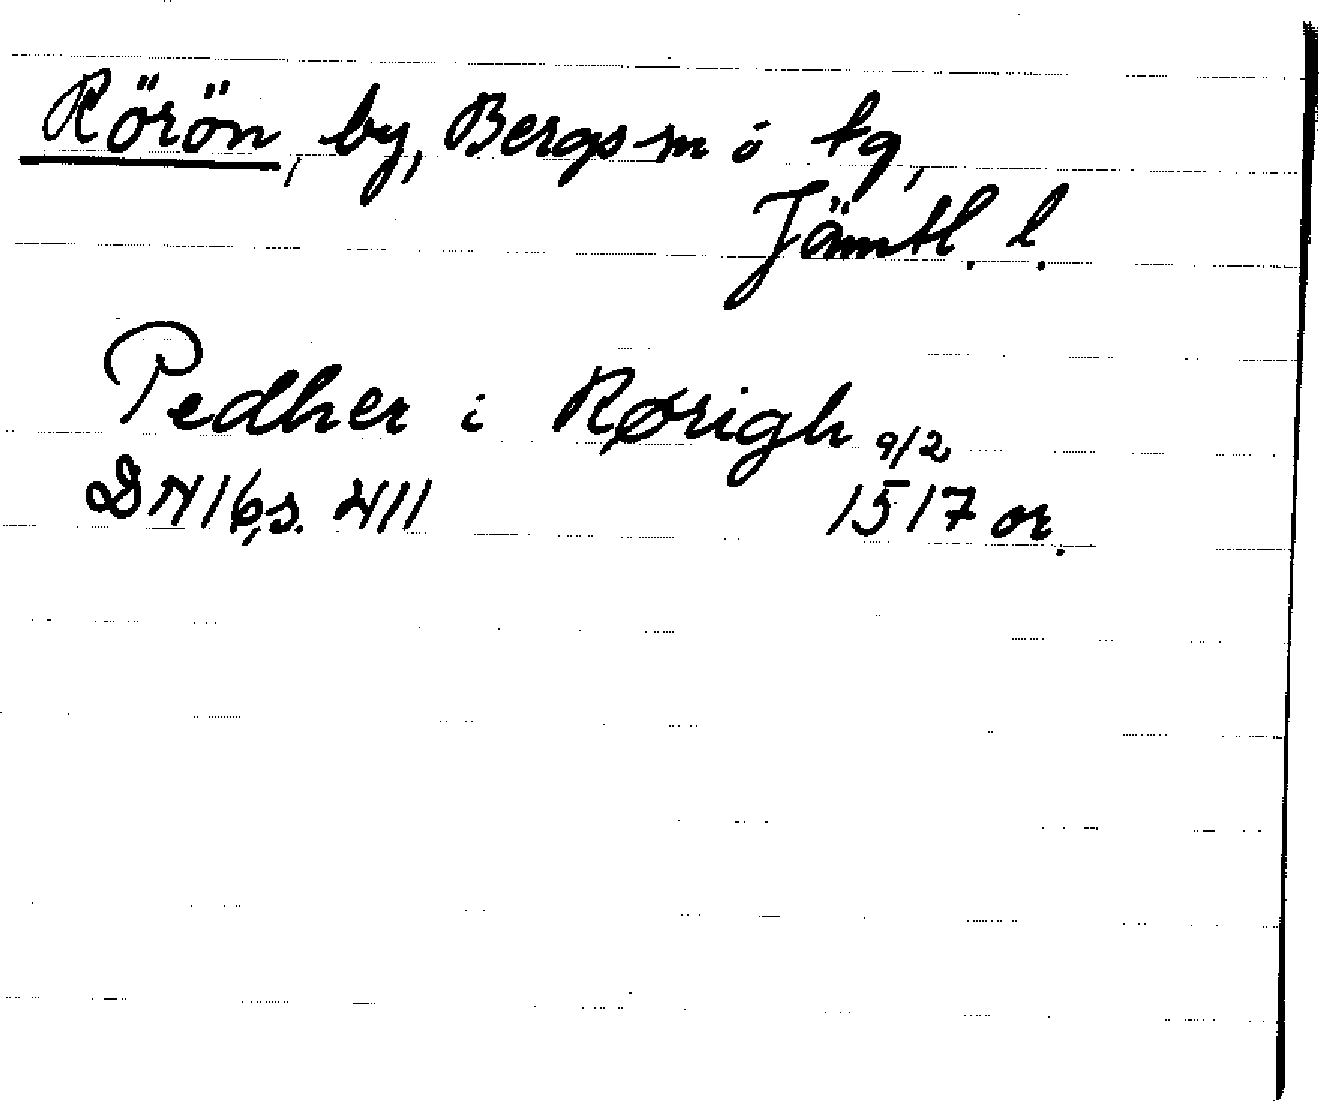 Rörön, by, Bergs sn o tg,
Jämtl. l.
Pedher i Rørigh 9/2
DN 16, s. 411 1517 or.